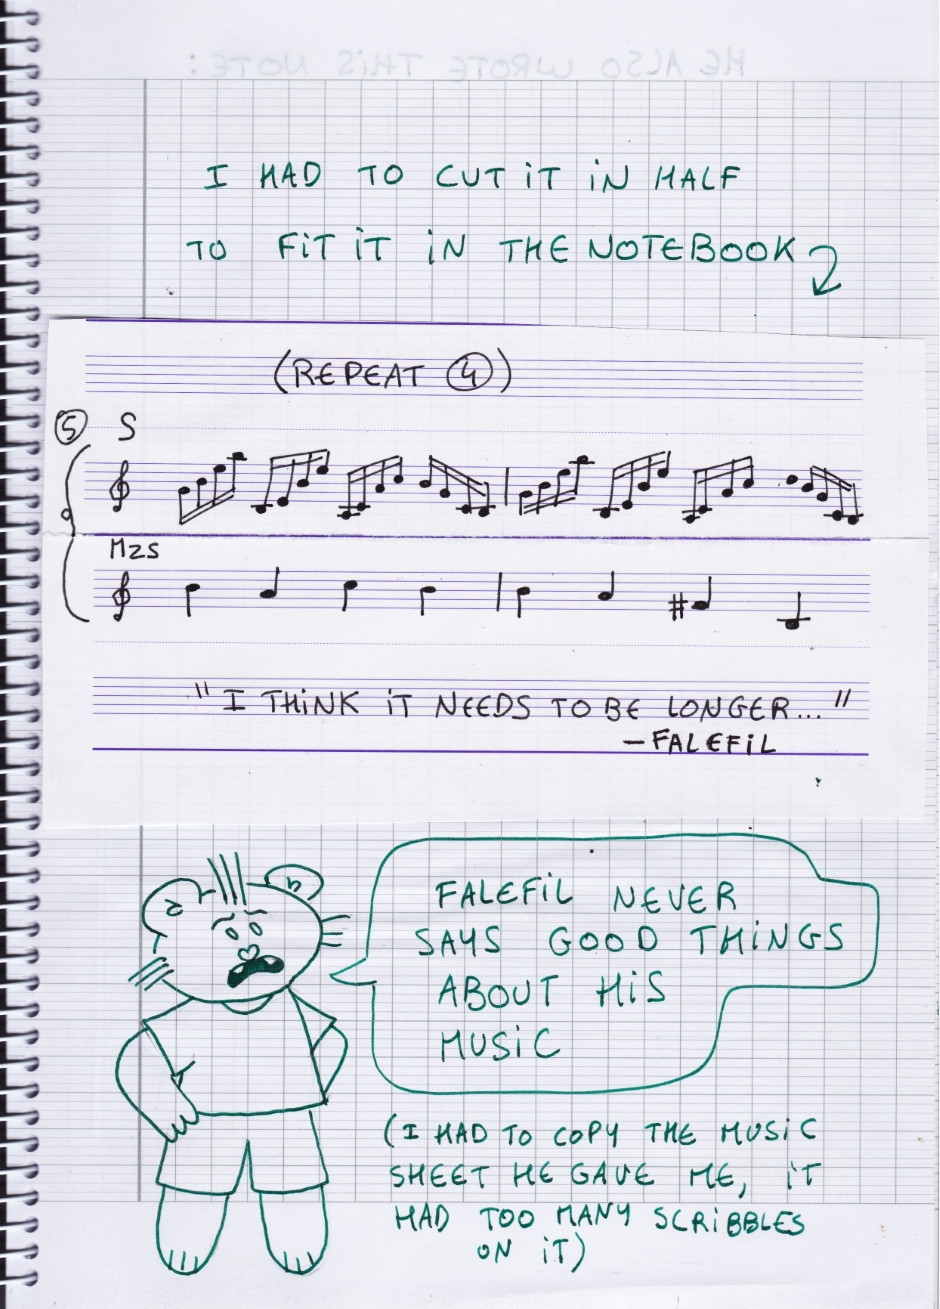 HE ALSO WROTE THIS NOTE:
I HAD TO CUT IT IN HALF
TO FIT IT IN THE NOTEBOOK
(REPEAT 4)
5 S
MZS
"I THINK IT NEEDS TO BE LONGER..."
—FALEFIL
FALEFIL NEVER
SAYS GOOD THINGS
ABOUT HIS
MUSIC
(I HAD TO COPY THE MUSIC
SHEET HE GAVE ME, IT
HAD TOO MANY SCRIBBLES
ON IT)